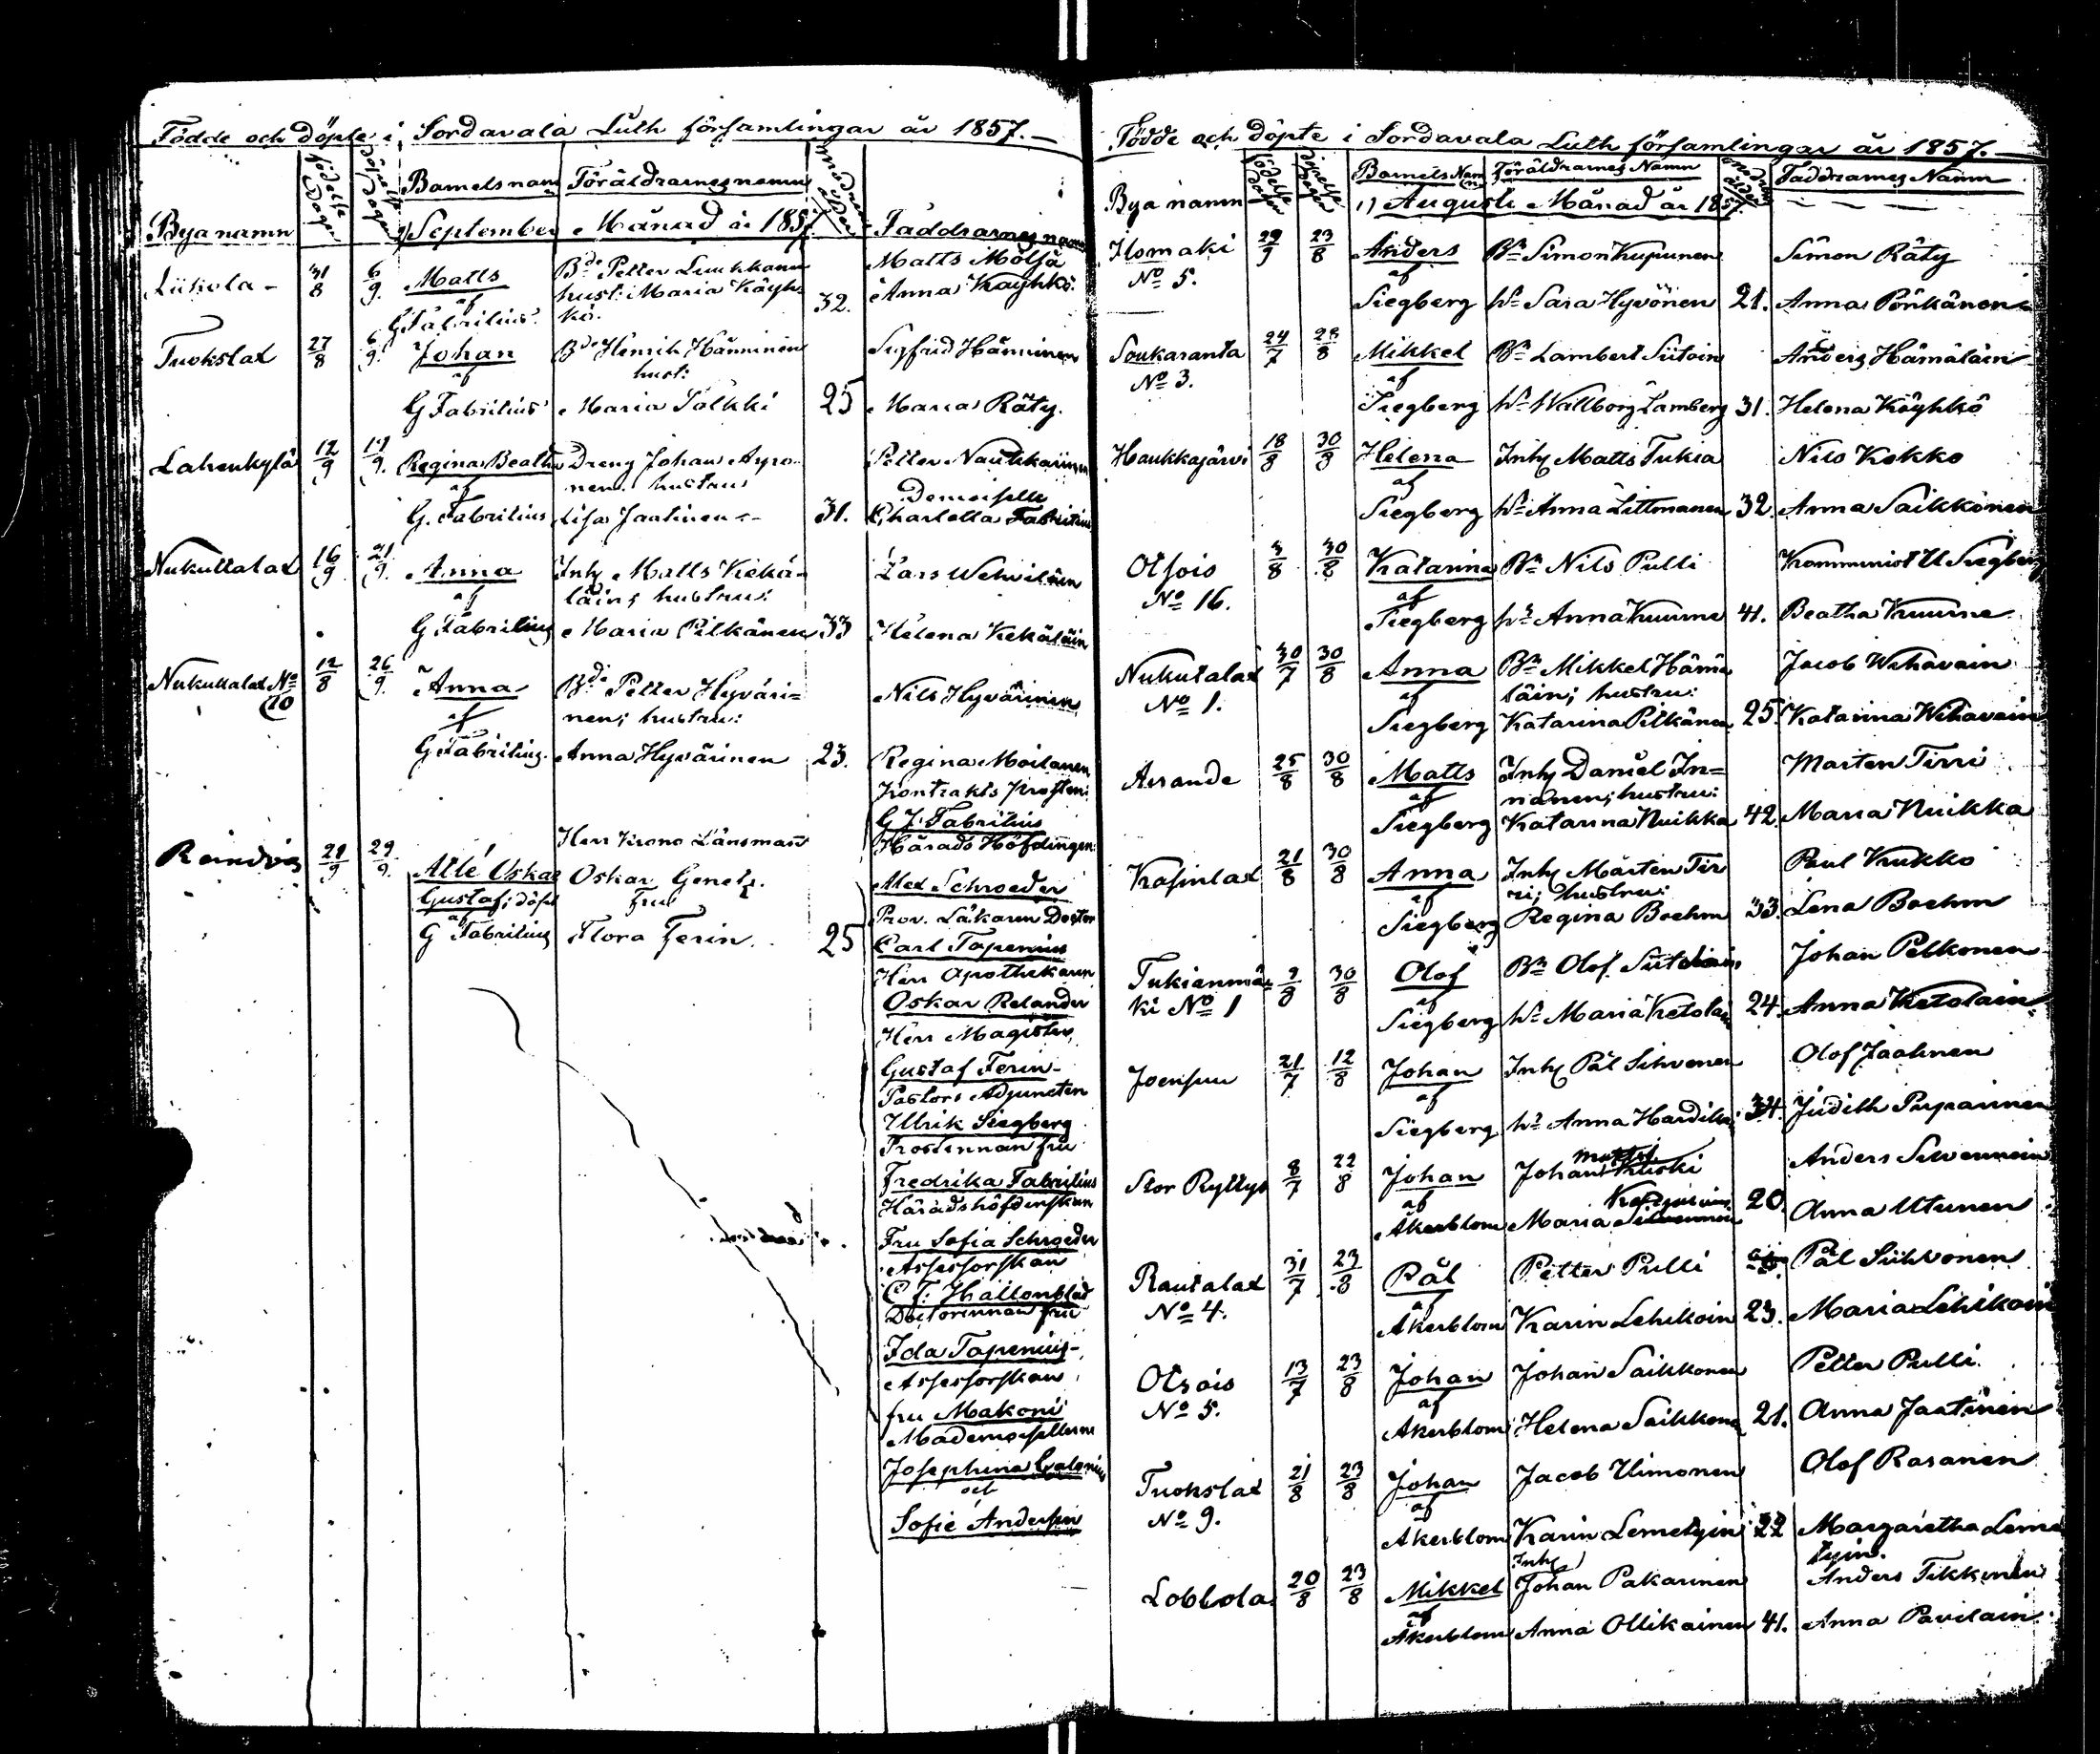 Födde och döpte i Sordavala Luth församlingar år 1857.
Byanamn födelse dagar döpelse dagar Barnets namn Föräldrarnes namn modrens ålder Faddrarnes namn
September Månad år 1857.
Liikola - 31/8 6/9. Matts Bde Petter Luukkanen Matts Mölsä
af hust: Maria Käyh- 32. Anna Käyhkö.
G Fabritius. kö.
Tuokslax 27/8 6/9. Johan Bde Henrik Hänninen Sigfrid Hänninen
af hust:
G Fabritius Maria Pålkki 25 Maria Räty.
Lahenkylä 12/9 19/9. Regina Beatha Dreng Johan Äyrö- Petter Naukkarinen
af nen. hustru Demoiselle
G. Fabritius Lisa Jaatinen - 31. Charlotta Fabritius
Nukuttalax 16/9 21/9. Anna Inh Matts Kekä- Lars Wehviläin
af läin; hustru:
G Fabritius Maria Pitkänen 33 Helena Kekäläin
Nukuttalax No 10 12/8 26/9. Anna Bde Petter Hyväri= Nils Hyvärinen
af nen; hustru:
G Fabritius. Anna Hyvärinen 23. Regina Moilanen
Kontrakts Prosten:
G J. Fabritius
Herr Krono Länsman Härads Höfdingen:
Reindvig 21/9 29/9. Atlé Oskar Oskar Genetz. Alex Schroeder
Gustaf; döpt fru Prov. Läkaren Doctor
af
G Fabritius Flora Ferin. 25 Carl Tapenius
Herr Apothekaren
Oskar Relander
Herr Magister
Gustaf Ferin-
Pastors Adjuncten
Ulrik Siegberg
Prostinnan fru
Fredrika Fabritius
Häradshöfdinskan
Fru Sofia Schroeder
Assessorskan
C F: Hallonblad
Doctorinnan fru
Ida Tapenius-
Assessorskan
fru Makoni
Mademoisellerne
Josephina Calonius
och
Sofie Andersin
Födde och döpte i Sordavala Luth församlingar år 1857.
Bya namn födelse dagar döpelse dagar Barnets Namn Föräldrarnes Namn modrens ålder Faddrarnes Namn
Augusti Månad år 1857.
Ilomäki 29/9 23/8 Anders Bn Simon Kupunen Simon Räty
No 5. af
Siegberg hu Sara Hyvönen 21. Anna Pönkänen
Soukaranta 24/7 28/8 Mikkel Bn Lambert Siitoin Anders Hämäläin
No 3. af
Siegberg hu Wallborg Lamberg 31. Helena Käyhkö
Haukkajärvi 18/8 30/8 Helena Inh Matts Tukia Nils Kokko
af
Siegberg hu Anna Littmanen 32. Anna Saikkonen
Otsois 3/8 30/8 Katarina Bn Nils Pulli Komminist U Siegberg
No 16. af
Siegberg hu Anna Kuurne 41. Beatha Kuurne
Nukutalax 30/7 30/8 Anna Bn Mikkel Hämä Jacob Wehavain
No 1. af läin; hustru:
Siegberg Katarina Pitkänen 25 Katarina Wehavain
Arrande 25/8 30/8 Matts Inh Daniel In= Mårten Tirri
af nanen; hustru:
Siegberg Katarina Nuikka 42. Maria Nuikka
Krasinlax 21/8 30/8 Anna Inh Mårten Tir Paul Kukko
af ri; hustru:
Siegberg Regina Boehm 33. Lena Boehm
Tukianmä- 2/8 30/8 Olof Bn Olof Siitoin Johan Pelkonen
ki No 1 af
Siegberg hu Maria Ketolain 24. Anna Ketolain
Joensuu 21/7 12/8 Johan Inh Pål Sihvonen Olof Jaatinen
af
Siegberg hu Anna Hardikka 34. Judith Puparinen
Stor Ryttys 8/7 22/8 Johan Johan Kuski Anders Silvennoin
af
Åkerblom Maria 20. Anna Utunen
Rautalax 31/7 23/8 Pål Petter Pulli Pål Siihvonen
No 4. af
Åkerblom Karin Lehikoin 23. Maria Lehikoin
Otsois 13/7 23/8 Johan Johan Saikkonen Petter Pulli
No 5. af
Åkerblom Helena Saikkone 21. Anna Jaatinen
Tuokslax 21/8 23/8 Johan Jacob Uimonen Olof Räsänen
No 9. af
Åkerblom Karin Lemetyin 22 Margaretha Leme
tyin.
Lobbola 20/8 23/8 Mikkel Inh Johan Pakarinen Anders Tikkinen
af
Åkerblom Anna Ollikainen 41. Anna Pavilain.